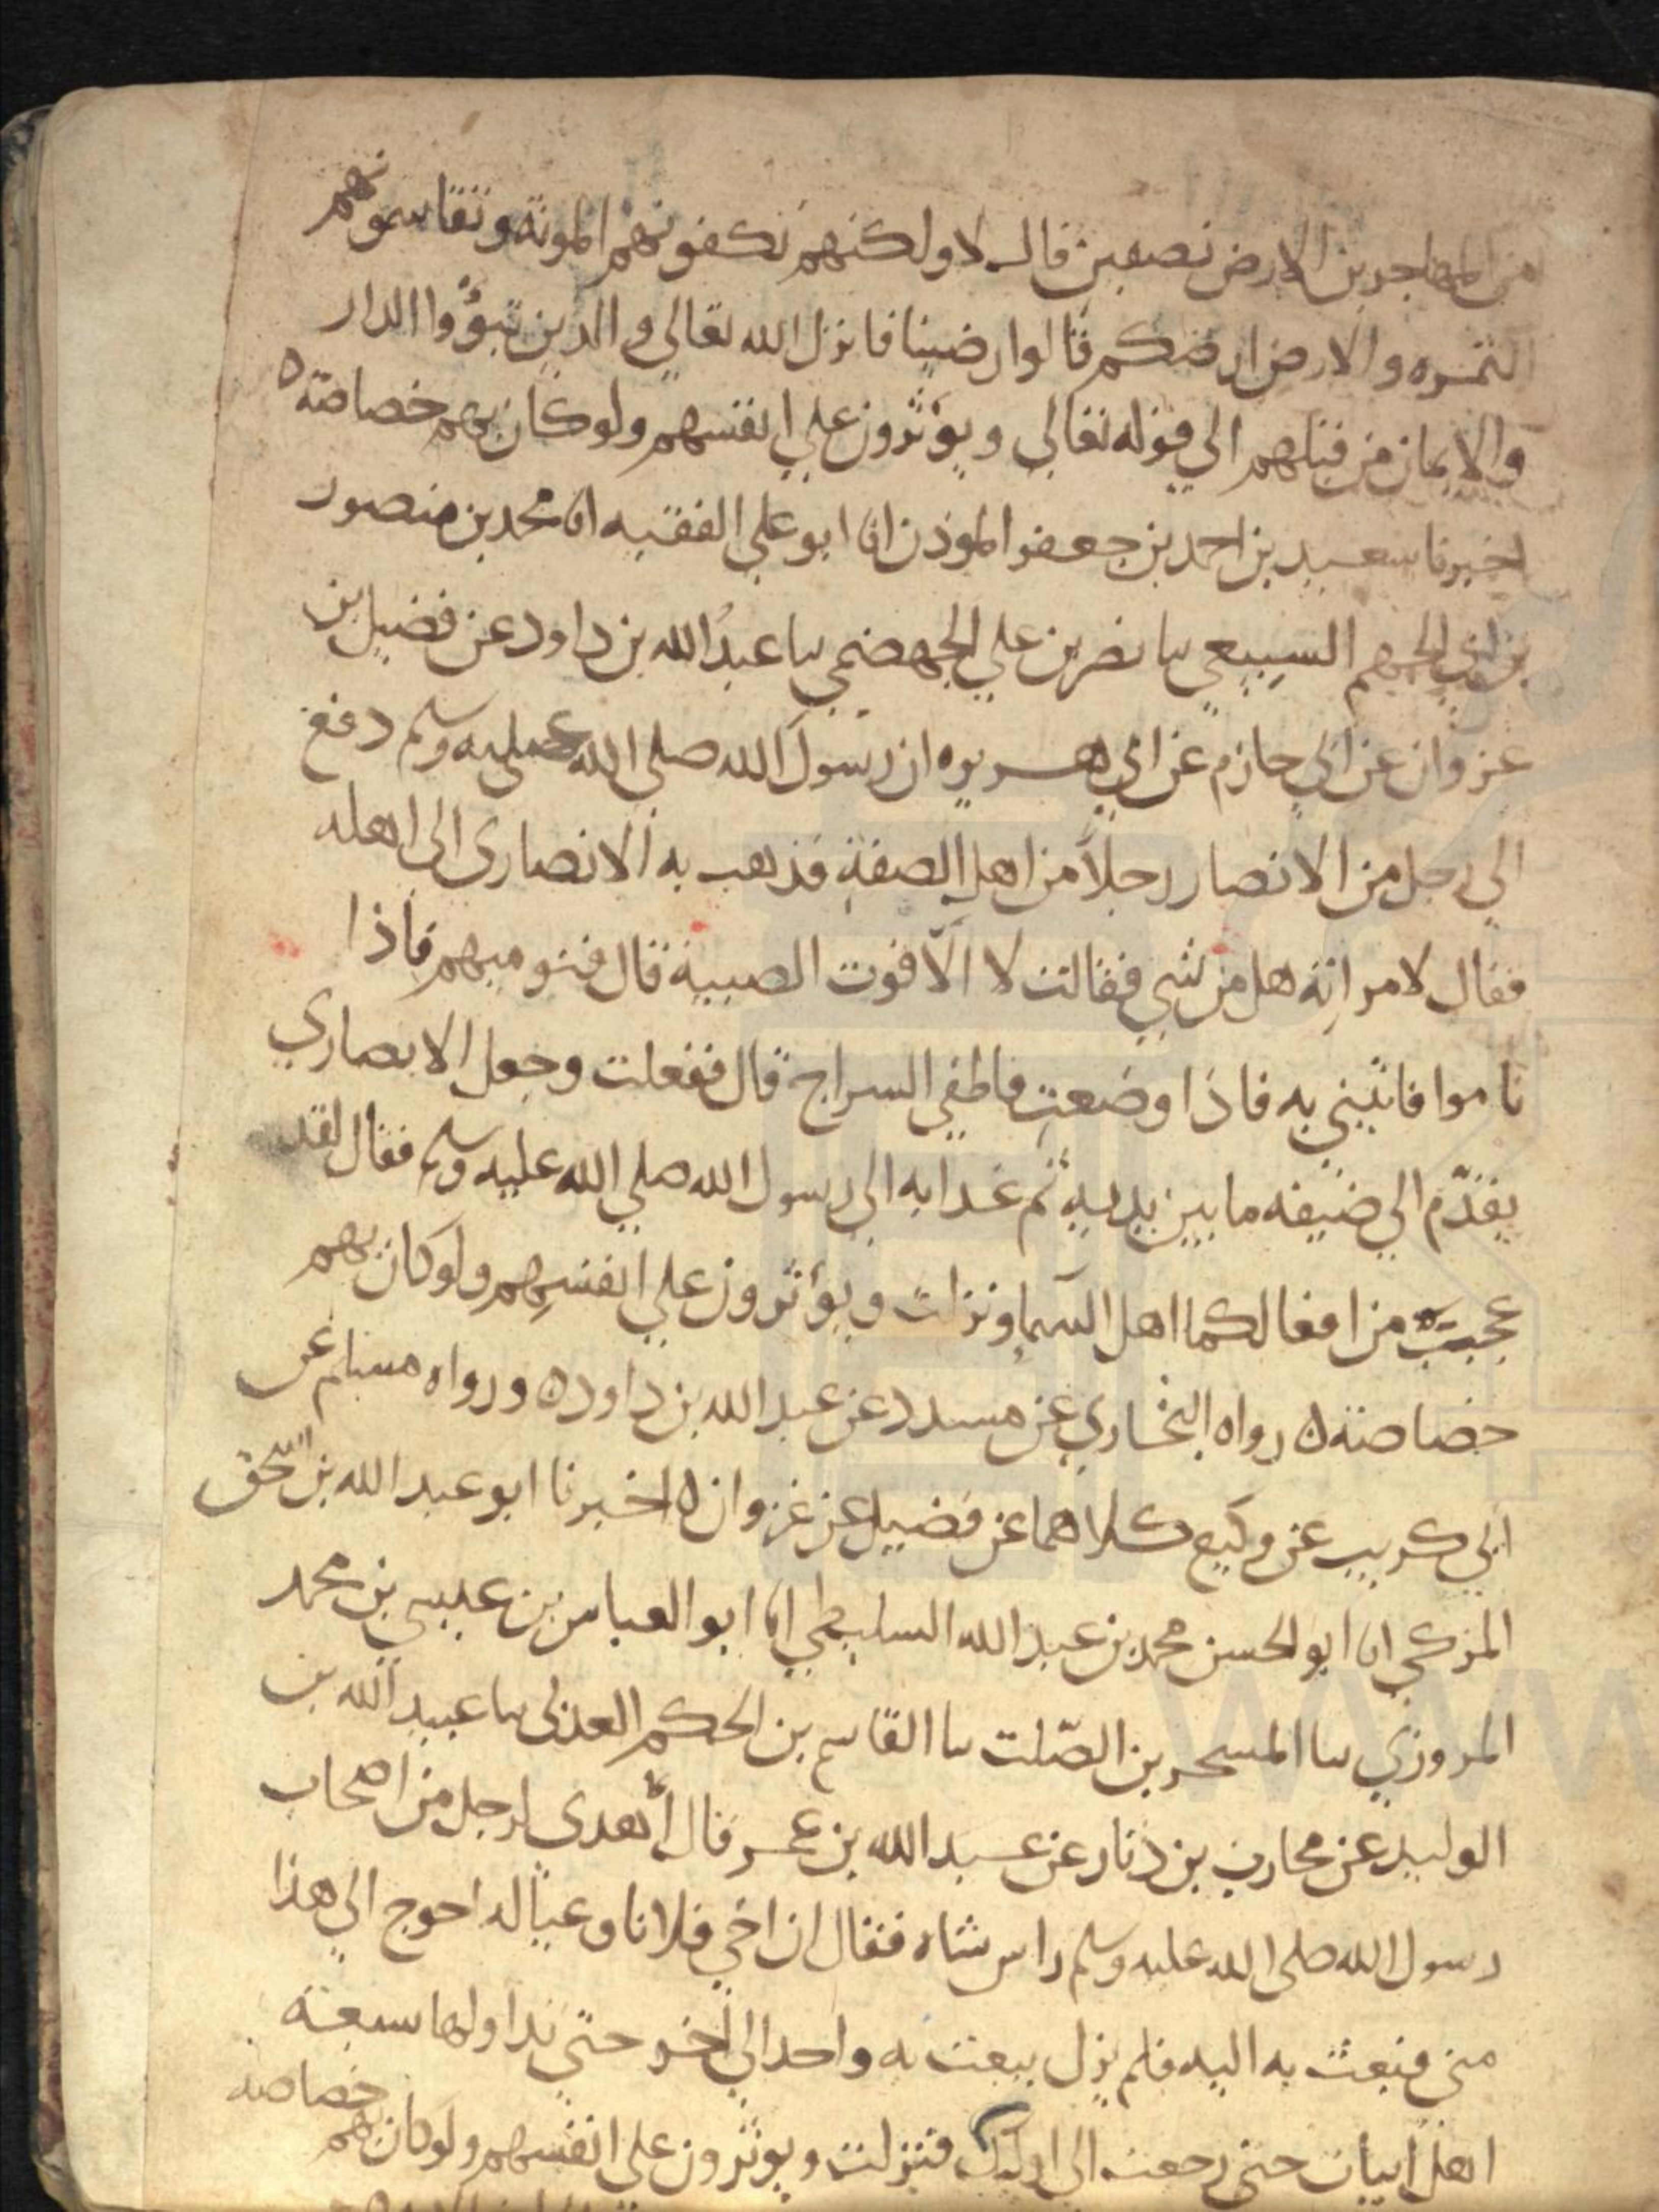 من المهاجرين الارض نصفين قال لا ولكنهم نكفونهم المونة وتقاسمونهم
الثمره والارض ارضكم قالوا رضينا فانزل الله تعالي والذين تبوؤا الدار
والايمان من قبلهم الي قوله تعالي ويؤثرون علي انفسهم ولو كان بهم خصاصة ه
اخبرنا سعيد بن احمد بن جعفر الموذن انا ابو علي الفقيه انا محمد بن منصور
بن ابي الجهم السبيعي سا نصر بن علي الجهضمي سا عبد الله بن داود عن فضيل بن
غزوان عن ابي حازم عن ابي هريره ان رسول الله صلي الله عليه وسلم دفع
الي رجل من الانصار رجلاً من اهل الصفة فذهب به الانصارى الى اهله
فقال لامراته هل من شي فقالت لا الّا قوت الصبية قال فنوميهم فاذا
ناموا فاتيني به فاذا وضعتِ فاطفي السراج قال ففعلت وجعل الانصاري
يقدّم الي ضيفه ما بين يديه ثم غدا به الي رسول الله صلي الله عليه وسلم فقال لقد
عجبت من افعالكما اهل السما ونزلت ويؤثرون علي انفسهم ولو كان بهم
خصاصة ه رواه البخاري عن مسدد عن عبد الله بن داود ه ورواه مسلم عن
ابي كريب عن وكيع كلاهما عن فضيل عن غزوان ه اخبرنا ابو عبد الله بن اسحق
المزكي انا ابو الحسن محمد بن عبد الله السليطي انا ابو العباس بن عيسي بن محمد
المروزي سا المسحر بن الصّلت سا القاسم بن الحكم العدنى سا عبيد الله بن
الوليد عن محارب بن دثار عن عبد الله بن عمر قال أهدى لرجل من اصحاب
رسول الله صلى الله عليه وسلم راس شاه فقال ان اخي فلانا وعياله احوج الي هذا
منى فبعث به اليه فلم يزل يبعث به واحد الي اخر حتي تداولها سبعة
اهل ابيات حتى رجعت الى اوليك فنزلت ويوثرون علي انفسهم ولو كان بهم خصاصة